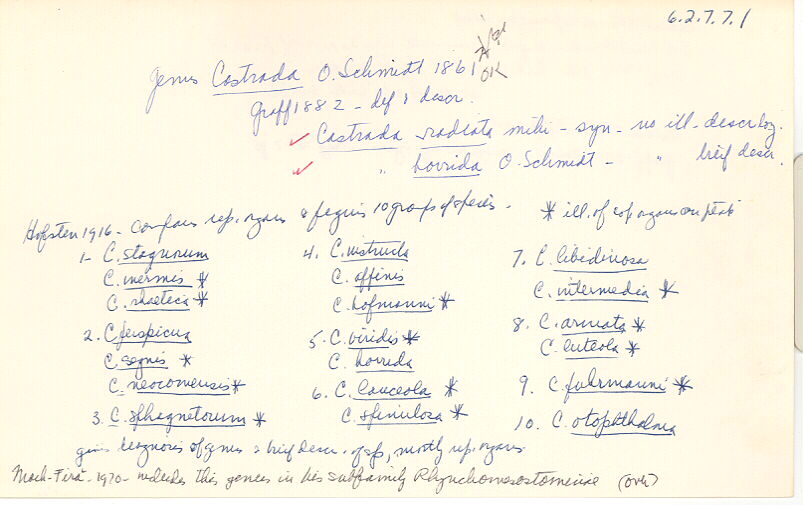 6.2.7.7.1
Genus Castrada O. Schmidt 1861
OK
Graff 1882 - def & descr.
Castrada radiata mihi - syn - no ill - descr
" horrida O. Schmidt - " brief descr.
Hofsten 1916 - compares rep. organs & 10 groups of species. * ill. of cop organs on plate
1- C. stagnorum
C. inermis *
C. rhaetica *
2. C. perspicua
C. segnis *
C. neocomensis *
3. C. sphagnetorum *
4. C. instructa
C. affinis
C. hofmanni *
5. C. viridis *
C. horrida
6. C. lanceola *
C. spinulosa *
7. C. libidinosa
C. intermedia *
8. C. armata *
C. luteola *
9. C. fuhrmanni *
10. C. otophthalma
gives diagnosis of genus & brief descr. of sp, mostly rep. organs
Mack-Fira - 1970 - includes this genus in his subfamily Rhynchomesostominae (over)